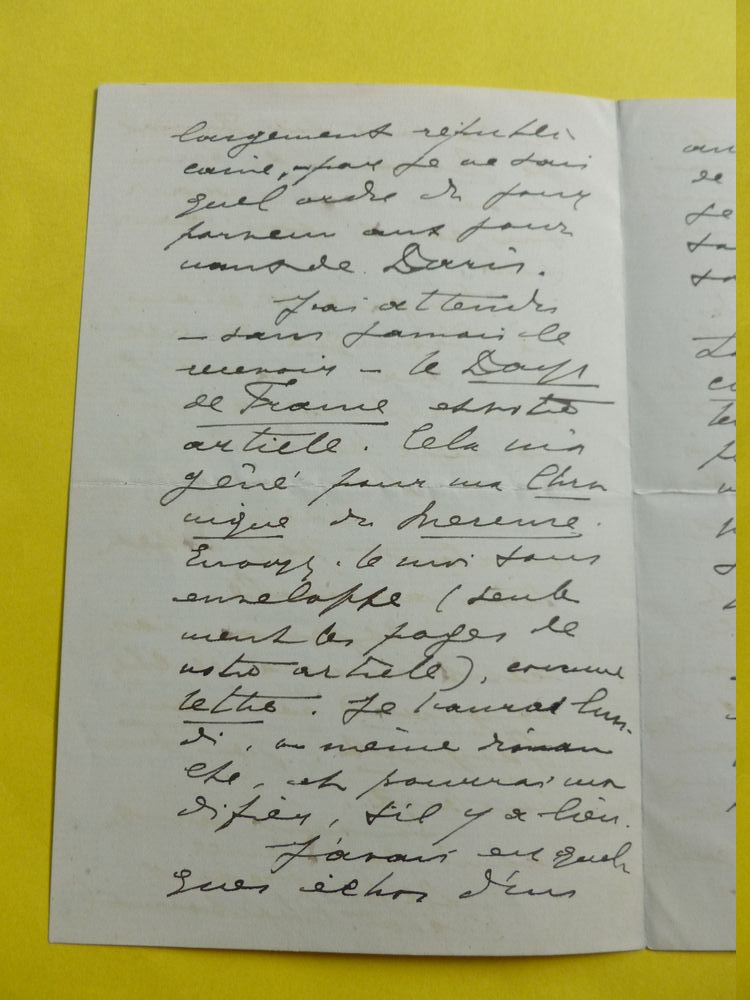 largement républi
caine, par je ne sais
quel ordre du jour
parvenu aux jour
naux de Paris.
J'ai attendu
– sans jamais le
recevoir – le Pays
de France et votre
article. Cela m'a
gêné pour ma Chro
nique du Mercure.
Envoyez-le moi sous
enveloppe (seule
ment les pages de
votre article), comme
lettre. Je l'aurai lun-
di, ou même diman
che, et pourrai mo
difier, s'il y a lieu.
J'avais eu quel
ques échos d'un
au
de
je